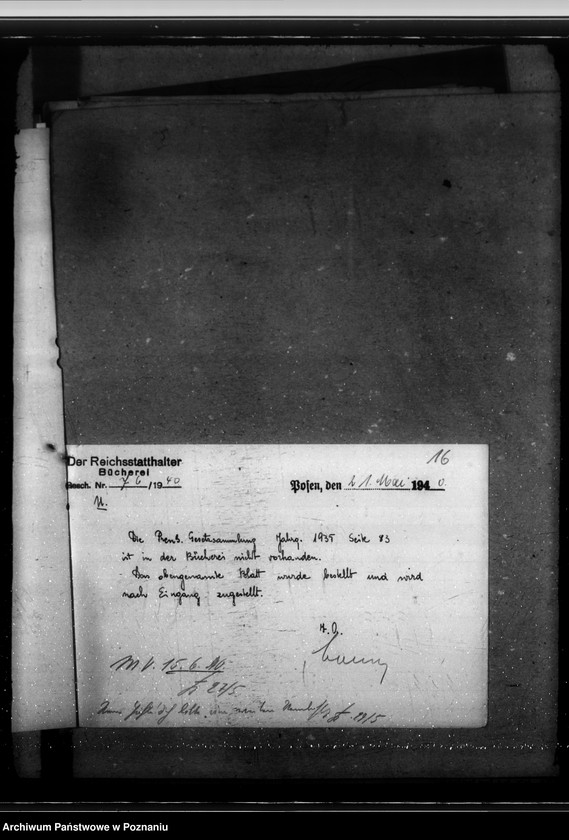 16
Der Reichsstatthalter
Bücherei
Gesch. Nr. 76/1940
Posen, den 21. Mai 1940.
Die Preuß. Gesetzsammlung Jahrg. 1935 Seite 83
ist in der Bücherei nicht vorhanden.
Das obengenannte Blatt wurde bestellt und wird
nach Eingang zugestellt.
W.V. 15.6.40
22/5
29/5
Archiwum Państwowe w Poznaniu